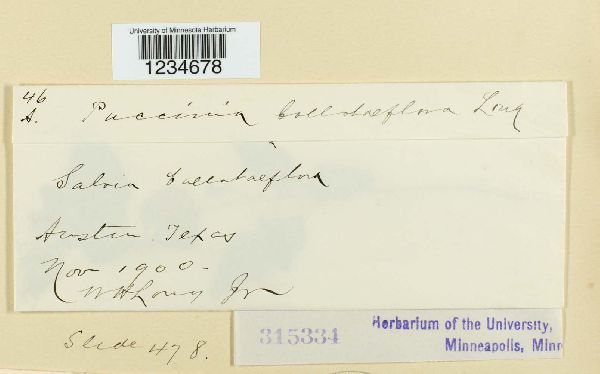 University of Minnesota Herbarium
1234678
46
A. Puccinia ballotaeflora Long
Salvia ballotaeflora
Austin Texas
Nov 1900-
W H Long Jr
315334
Herbarium of the University,
Minneapolis, Minn
Slide 478.